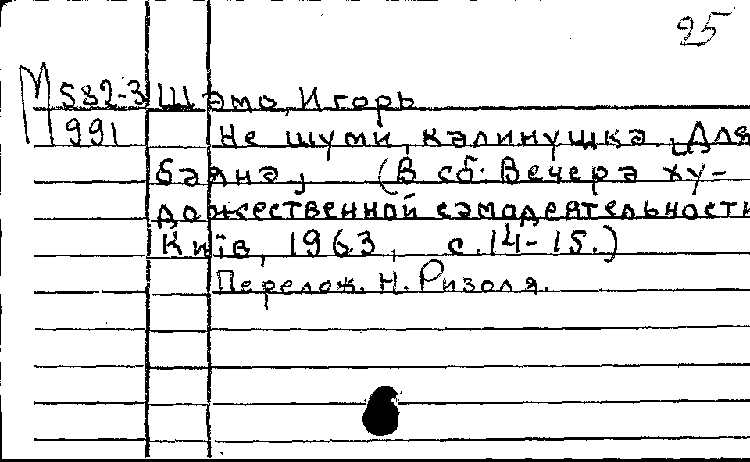 25
М 582-3 Шамо, Игорь
991 Не шуми, калинушка. [Для
баяна]. (В сб: Вечера ху-
дожественной самодеятельности
Київ, 1963, с.14-15.)
Перелож. Н. Ризоля.